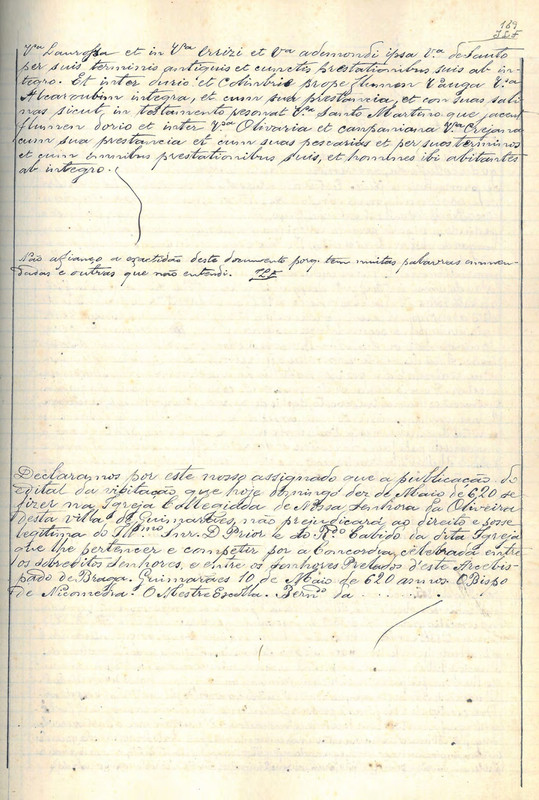 169
J.L.F
Vª Laurosa et in Vª Errizi et Vª ademondi ipsa Vª de Sauto
per suis terminis antiquis et cunctis prestationibus suis ab in-
tegro. Et inter durio et Colimbrie prope flumen Vauga Vªª
Alcaroubim integra, et cum sua prestancia, et con suas sali
nas sicut, in testamento resonat Vª Santo Martino que jacent
flumen dorio et inter Vªª Olivaria et campaniana Vª Crejana
cum sua prestancia et cum suas pescarias et per suos terminos
et cum omnibus prestationibus suis, et homines ibi abitantes
ab integro.
Não afianço a exactidão deste documento porq. tem muitas palavras emmen-
dadas e outras que não entendi. JLF
Declaramos por este nosso assignado que a publicação do
edital da visitação, que hoje domingo dez de Maio de 620 se
fizer na Igreja Collegiada de Nossa Senhora da Oliveira
desta villa de Guimarães, não prejudicará ao direito e posse
legitima do Ill.mo Snr. D. Prior e do R.do Cabido da dita Igreja
que lhe pertencer e competir por a Concordia, celebrada entre
os sobreditos Senhores, e entre os Senhores Prelados d'este Arcebis-
pado de Braga. Guimarães 10 de Maio de 620 annos. O Bispo
de Nicomedia. O Mestre Escolla. Bern.do da . . . . . .